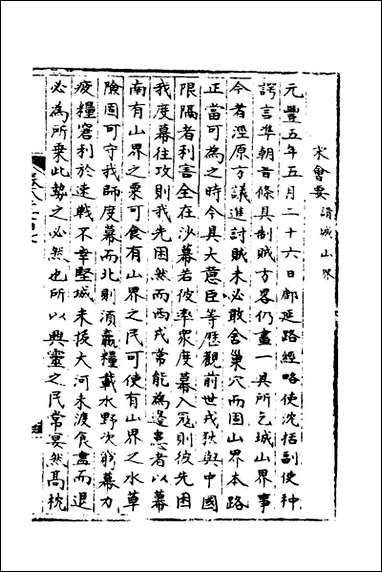 宋會要 請城山界
元豐五年五月二十六日鄜延路經略使沈括副使种
諤言準朝旨條具制賊方畧仍畫一具所乞城山界事
今者涇原方議進討賊未必敢舍巢穴而固山界本路
正當可為之時今具大意臣等歷觀前世戎狄與中國
限隔者利害全在沙幕若彼率衆度幕入冦則彼先困
我度幕往攻則我先困然而西戎常能為邊患者以幕
南有山界之粟可食有山界之民可使有山界之水草
險固可守我師度幕而北則須贏糧載水野次窮幕力
疲糧窘利於速戰不幸堅城未拔大河未渡食盡而退
必為所乗此勢之必然也所以興靈之民常宴然髙枕